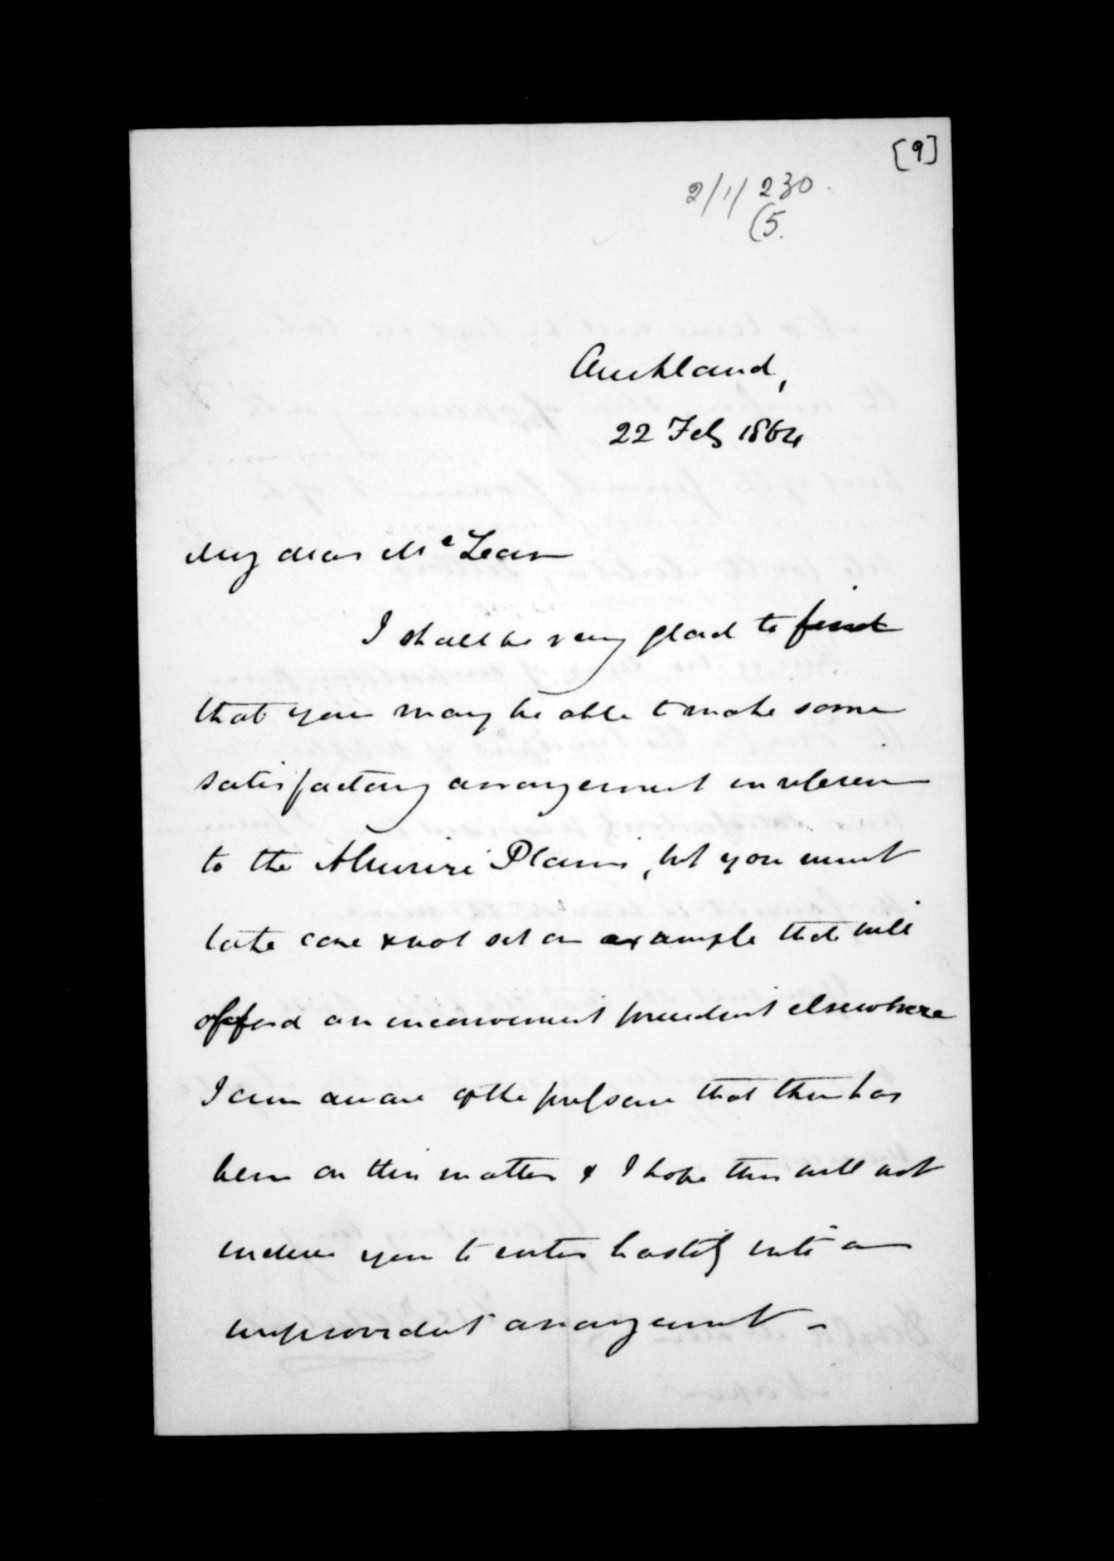 [9]
2/1/230.
(5.
Auckland,
22 Feb 1864
My dear McLean
I shall be very glad to find
that you may be able to make some
satisfactory arrangement in reference
to the Ahuriri Plains, but you must
take care & not set an example that will
afford an inconvenient precedent elsewhere
I am aware of the pressure that there has
been on this matter & I hope this will not
induce you to enter hastily into an
improvident arrangement -